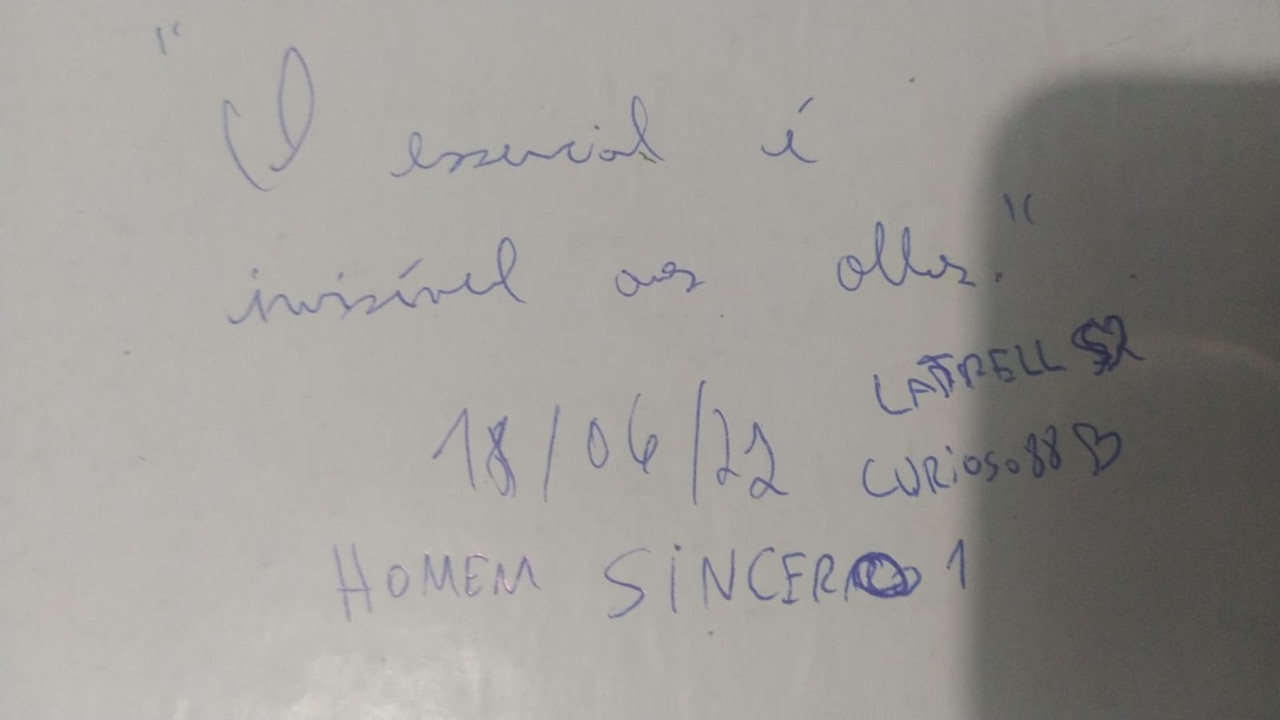 "O essencial é
invisível aos olhos."
LATRELL
18/06/22
CURIOSO88
HOMEM SINCERO 1